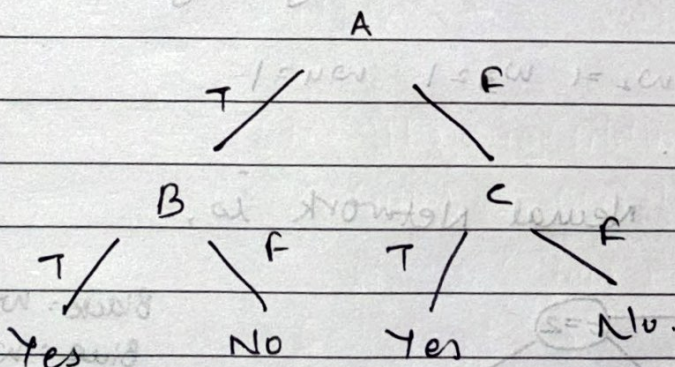 A
T F
B C
T F T F
Yes No Yes No.